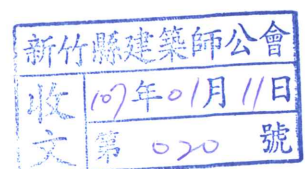 新竹縣建築師公會
收文
107年01月11日
第 020 號